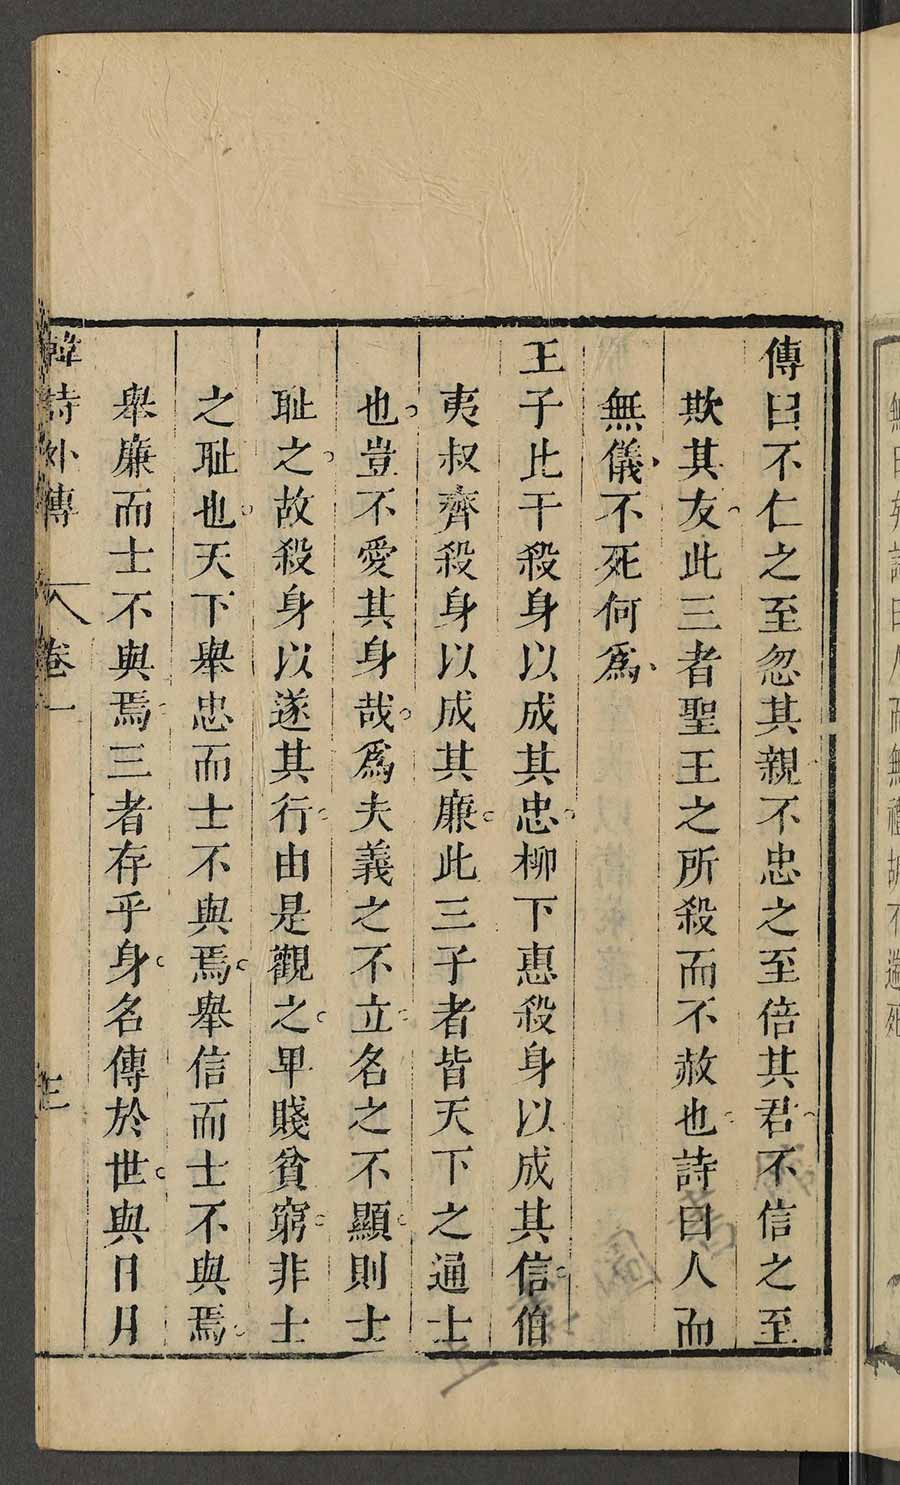 傳曰不仁之至忽其親不忠之至倍其君不信之至
欺其友此三者聖王之所殺而不赦也詩曰人而
無儀不死何爲
王子比干殺身以成其忠柳下惠殺身以成其信伯
夷叔齊殺身以成其廉此三子者皆天下之通士
也豈不愛其身哉爲夫義之不立名之不顯則士
耻之故殺身以遂其行由是觀之卑賤貧窮非士
之耻也天下舉忠而士不與焉舉信而士不與焉
舉廉而士不與焉三者存乎身名傳於世與日月
韓詩外傳 卷一 三